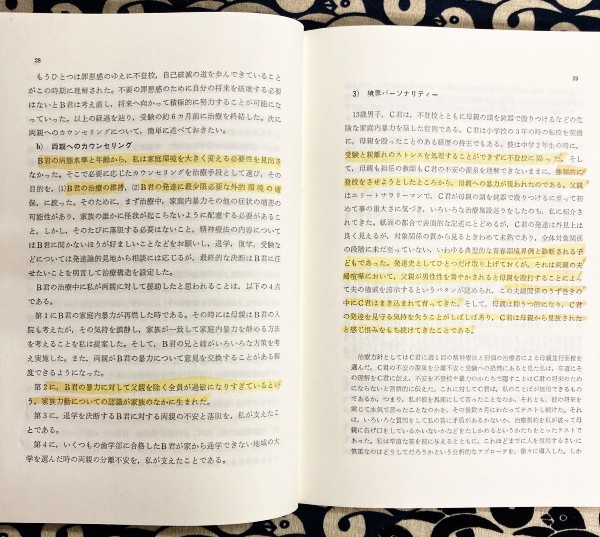 28
もうひとつは罪悪感のゆえに不登校，自己破滅の道を歩んできていること
がこの時期に理解された。不要の罪悪感のために自分の将来を破壊する必要
はないとＢ君は考え直し，将来へ向かって積極的に努力することが可能にな
っていった。以上の経過を辿り，受験の約６カ月前に治療を終結した。次に
両親へのカウンセリングについて，簡単に述べておきたい。
b) 両親へのカウンセリング
Ｂ君の病態水準と年齢から，私は家庭環境を大きく変える必要性を見出さ
なかった。そこで必要に応じたカウンセリングを治療手段として選び，その
目的を，(1)Ｂ君の治療の維持，(2)Ｂ君の発達に最少限必要な外的環境の確
保，に絞った。そのために，まず治療中，家庭内暴力その他の症状の増悪の
可能性があり，家族の誰かに怪我が起こらないように配慮する必要があるこ
と，しかし，そのたびに落胆する必要はないこと，精神療法の内容について
はＢ君に聞かないほうが好ましいことなどをお願いし，退学，復学，受験な
どについては発達論的見地から相談には応じるが，最終的な決断はＢ君に任
せたいことを明言して治療構造を設定した。
Ｂ君の治療中に私が両親に対して援助したと思われることは，以下の４点
である。
第１にＢ君の家庭内暴力が再燃した時である。その時には母親はＢ君の入
院も考えたが，その気持を鎮静し，家族が一致して家庭内暴力を静める方法
を考えることを私は提案した。そして，Ｂ君の兄と姉がいろいろな方策を考
え実施した。また，両親がＢ君の暴力について意見を交換することがある程
度できるようになった。
第２に，Ｂ君の暴力に対して父親を除く全員が過敏になりすぎているとい
う，家族力動についての認識が家族のなかに生まれた。
第３に，退学を決断するＢ君に対する両親の不安と落胆を，私が支えたこ
とである。
第４に，いくつもの歯学部に合格したＢ君が家から通学できない地域の大
学を選んだ時の両親の分離不安を，私が支えたことである。
29
3) 境界パーソナリティー
13歳男子，Ｃ君は，不登校とともに母親の頭を鈍器で殴りつけるなどの危
険な家庭内暴力を呈した症例である。Ｃ君は小学校の３年の時の転校を契機
に，母親を殴ったことのある経歴の持主でもある。彼は中学２年生の時に，
受験と親離れのストレスを処理することができずに不登校に陥った。そし
て，母親も担任の教師もＣ君の不安の源泉を理解できないままに，
登校をさせようとしたところから，母親への暴力が現われたのである。父親
はエリートサラリーマンで，Ｃ君が母親の頭を鈍器で殴りつけるに至って初
めて事の重大さに気づき，いろいろな治療施設巡りをしたのち，私に紹介さ
れてきた。紙面の都合で表面的な記述にとどめるが，Ｃ君の発達は外見上は
良く見えるが，対象関係の質から見るときわめて未熟であり，全体対象関係
の段階に未だ至っていない，いわゆる典型的な青春期境界例と診断される子
どもであった。発達史としてひとつだけ取り上げておくが，それは両親の夫
婦喧嘩において，父親が男性性を脅やかされると母親を殴打することによっ
て夫の権威を誇示するというパタンが認められ，この夫婦関係のうず巻きの
中にＣ君はまき込まれて育ってきた。そして，母親は抑うつ的になり，Ｃ君
の発達を見守る気持を失うことがしばしばあり，Ｃ君は母親から見放された
と感じ恨みをもち続けてきたことである。
治療方針としてはＣ君に週１回の精神療法と別個の治療者による母親並行面接を
選んだ。Ｃ君の不安の源泉を治療と受験への恐怖にあると見た私は，率直にそ
の理解をＣ君に伝え，不安を不登校や暴力のかたちで隠すことはＣ君の将来のため
にならないと言語的に伝えた。これに対してＣ君は，私のことばが信用できるもので
あるか，つまり，私が彼を馬鹿にして言ったことなのか，それとも，彼の将来を
案じて本気で言ったことなのかを，その後数カ月にわたってテストし続けた。それ
は，いろいろな質問をして私の答に矛盾があるかないか，治療契約を私が破って母
親に告げ口をしているかいないかなどをたしかめるというかたちをとったテストで
あった。私は率直な答を彼に与えるとともに，これほどまでに人を信用するさいに
慎重なのはどうしてだろうかという分析的なアプローチを，徐々に導入した。しか